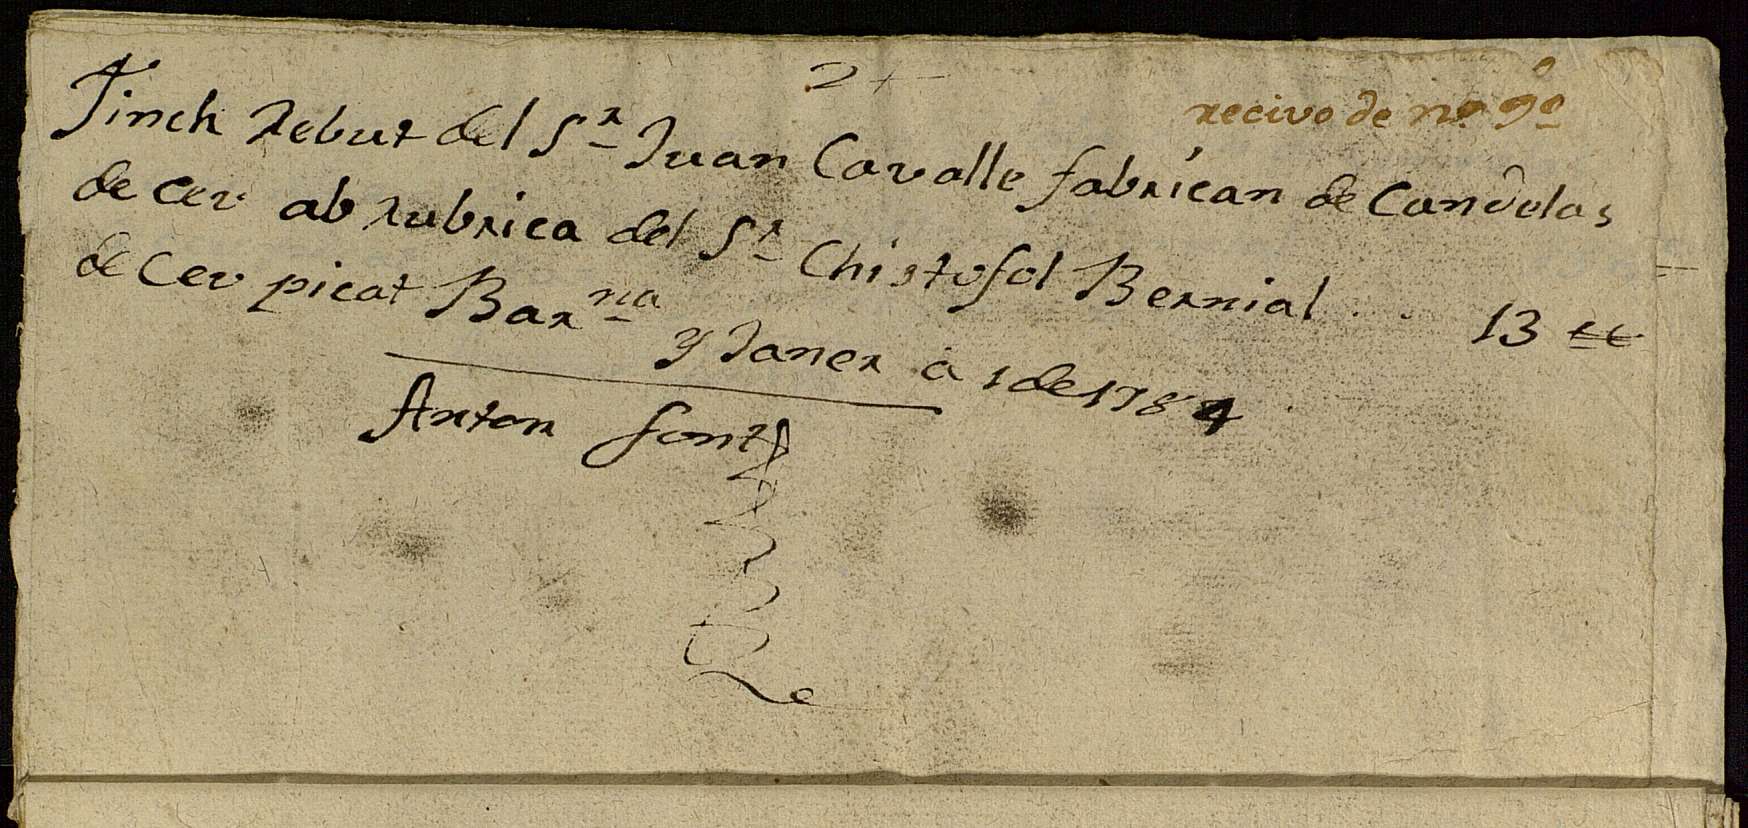 2+
recivo de nº 9º
Tinch Rebut del Sr Juan Cavalle fabrican de Candelas
de cer ab rubrica del Sr Chistofol Bernial . . 13 ££
de Cev picat Barna y Janer a 1 de 1784
Anton font